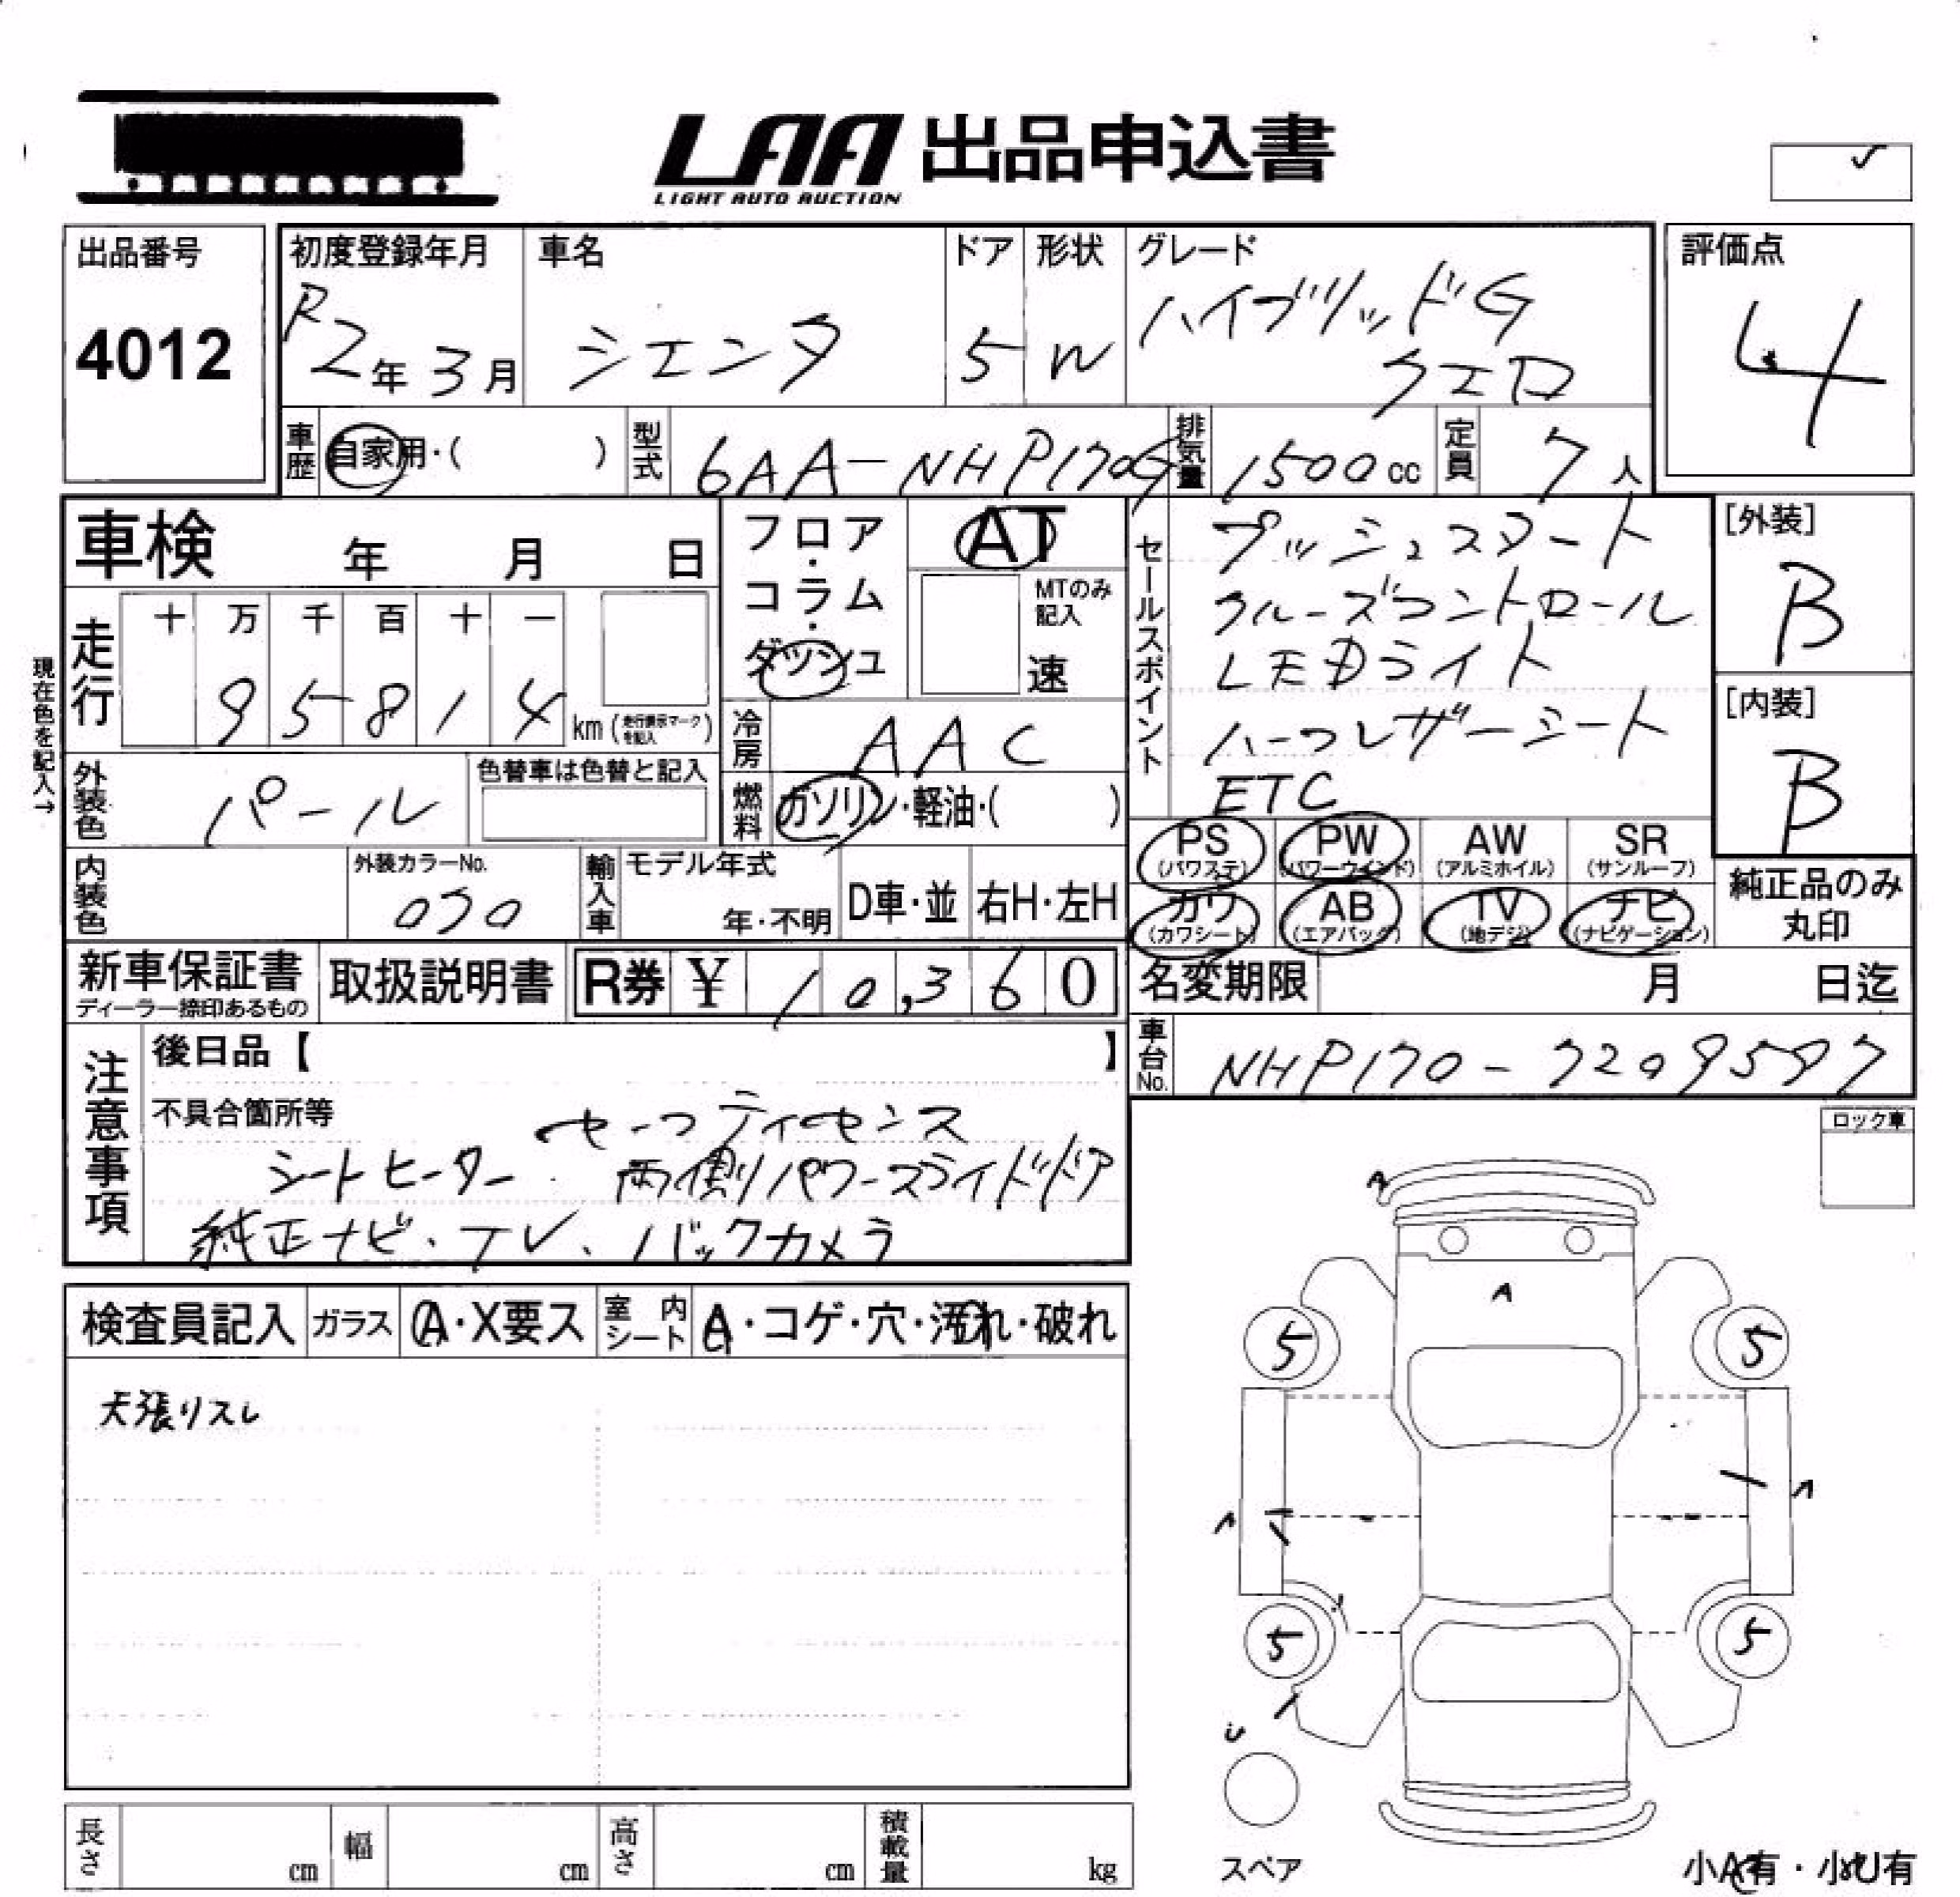 LAA 出品申込書
LIGHT AUTO AUCTION
出品番号
4012
初度登録年月
R2年3月
車名
シエンタ
ドア
5
形状
W
グレード
ハイブリッドG
クエロ
評価点
4
車歴
自家用・( )
型式
6AA-NHP170G
排気量
1500cc
定員
7人
車検 年 月 日
フロア・コラム・ダッシュ
AT
MTのみ記入
速
セールスポイント
プッシュスタート
クルーズコントロール
LEDライト
ハーフレザーシート
ETC
[外装]
B
[内装]
B
現在色を記入→
走行
十 万 千 百 十 一
9 5 8 1 4 km (走行表示マークを記入)
冷房
AAC
外装色
パール
色替車は色替と記入
燃料
ガソリン・軽油・( )
PS (パワステ)
PW (パワーウインド)
AW (アルミホイル)
SR (サンルーフ)
カワ (カワシート)
AB (エアバック)
TV (地デジ)
ナビ (ナビゲーション)
純正品のみ丸印
内装色
外装カラーNo.
070
輸入車
モデル年式
年・不明
D車・並
右H・左H
新車保証書
ディーラー捺印あるもの
取扱説明書
R券 ¥ 10,360
名変期限 月 日迄
車台No.
NHP170-7209597
注意事項
後日品【 】
不具合箇所等
セーフティセンス
シートヒーター 両側パワースライドドア
純正ナビ、TV、バックカメラ
ロック車
検査員記入
ガラス
A・X要ス
室内シート
A・コゲ・穴・汚れ・破れ
天張りスレ
A
A
5
5
5
5
スペア
小A有・小U有
長さ cm
幅 cm
高さ cm
積載量 kg